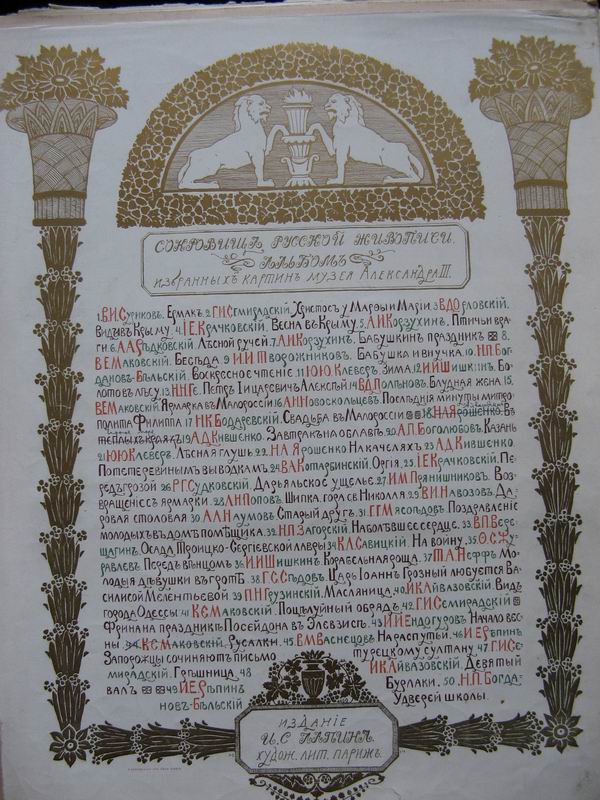 СОКРОВИЩА РУССКОЙ ЖИВОПИСИ.
АЛЬБОМЪ
ИЗБРАННЫХЪ КАРТИНЪ МУЗЕЯ АЛЕКСАНДРА III.
1. В.И.Суриковъ. Ермакъ. 2. Г.И.Семирадскій. Христосъ у Марѳы и Маріи. 3. В.Д.Орловскій.
Видъ въ Крыму. 4. І.Е.Крачковскій. Весна въ Крыму. 5. А.И.Корзухинъ. Птичьи вра-
ги. 6. А.А.Сѣдковскій. Лѣсной ручей. 7. А.И.Корзухинъ. Бабушкинъ праздникъ 8.
В.Е.Маковскій. Бесѣда. 9. И.И.Творожниковъ. Бабушка и внучка. 10. Н.П.Бог-
дановъ-Бѣльскій Воскресное чтеніе. 11. Ю.Ю.Клеверъ. Зима. 12. И.И.Шишкинъ. Бо-
лото въ лѣсу. 13. Н.Н.Ге. Петръ I и царевичъ Алексѣй. 14. В.Д.Полѣновъ. Блудная жена. 15.
В.Е.Маковскій. Ярмарка въ Малороссіи. 16. А.Н.Новоскольцевъ. Послѣднія минуты митро-
полита Филиппа. 17. Н.К.Бодаревскій. Свадьба въ Малороссіи 18. Н.А.Ярошенко. Въ
теплыхъ краяхъ. 19. А.Д.Кившенко. Завтракъ на облавѣ. 20. А.П.Боголюбовъ. Казань
21. Ю.Ю.Клеверъ. Лѣсная глушь. 22. Н.А.Ярошенко На качеляхъ. 23. А.Д.Кившенко.
По тетеревинымъ выводкамъ. 24. В.А.Котарбинскій. Оргія. 25. І.Е.Крачковскій. Пе-
редъ грозой 26. Р.Г.Судковскій. Дарьяльское ущелье. 27. И.М.Прянишниковъ. Воз-
вращеніе съ ярмарки. 28. А.Н.Поповъ. Шипка, гора св Николая. 29. В.И.Навозовъ. Да-
ровая столовая 30. А.А.Наумовъ. Старый другъ. 31. Г.Г.Мясоѣдовъ. Поздравленіе
молодыхъ въ домѣ помѣщика. 32. Н.П.Загорскій. Наболѣвшее сердце. 33. В.П.Вере-
щагинъ. Осада Троицко-Сергіевской лавры 34. К.А.Савицкій. На войну. 35. Ѳ.С.Жу-
равлевъ. Передъ вѣнцомъ. 36. И.И.Шишкинъ. Корабельная роща. 37. Т.А.Неффъ. Мо-
лодыя дѣвушки въ гротѣ. 38. Г.С.Сѣдовъ. Царь Іоаннъ Грозный любуется Ва-
силисой Мелентьевой 39. П.Н.Грузинскій. Масляница. 40. И.К.Айвазовскій. Видъ
города Одессы. 41. К.Е.Маковскій. Поцѣлуйный обрядъ. 42. Г.И.Семирадскій
Фрина на праздникѣ Посейдона въ Элевзисѣ. 43. И.И.Ендогуровъ Начало вес-
ны. 44. К.Е.Маковскій. Русалки. 45. В.М.Васнецовъ На распутьи. 46. И.Е.Рѣпинъ
Запорожцы сочиняютъ письмо турецкому султану. 47. Г.И.Се-
мирадскій. Грѣшница. 48 И.К.Айвазовскій. Девятый
валъ 49. И.Е.Рѣпинъ Бурлаки. 50. Н.П.Богда-
новъ-Бѣльскій У дверей школы.
ИЗДАНІЕ
И.С.ЛАПИНА
ХУДОЖ. ЛИТ. ПАРИЖЪ.